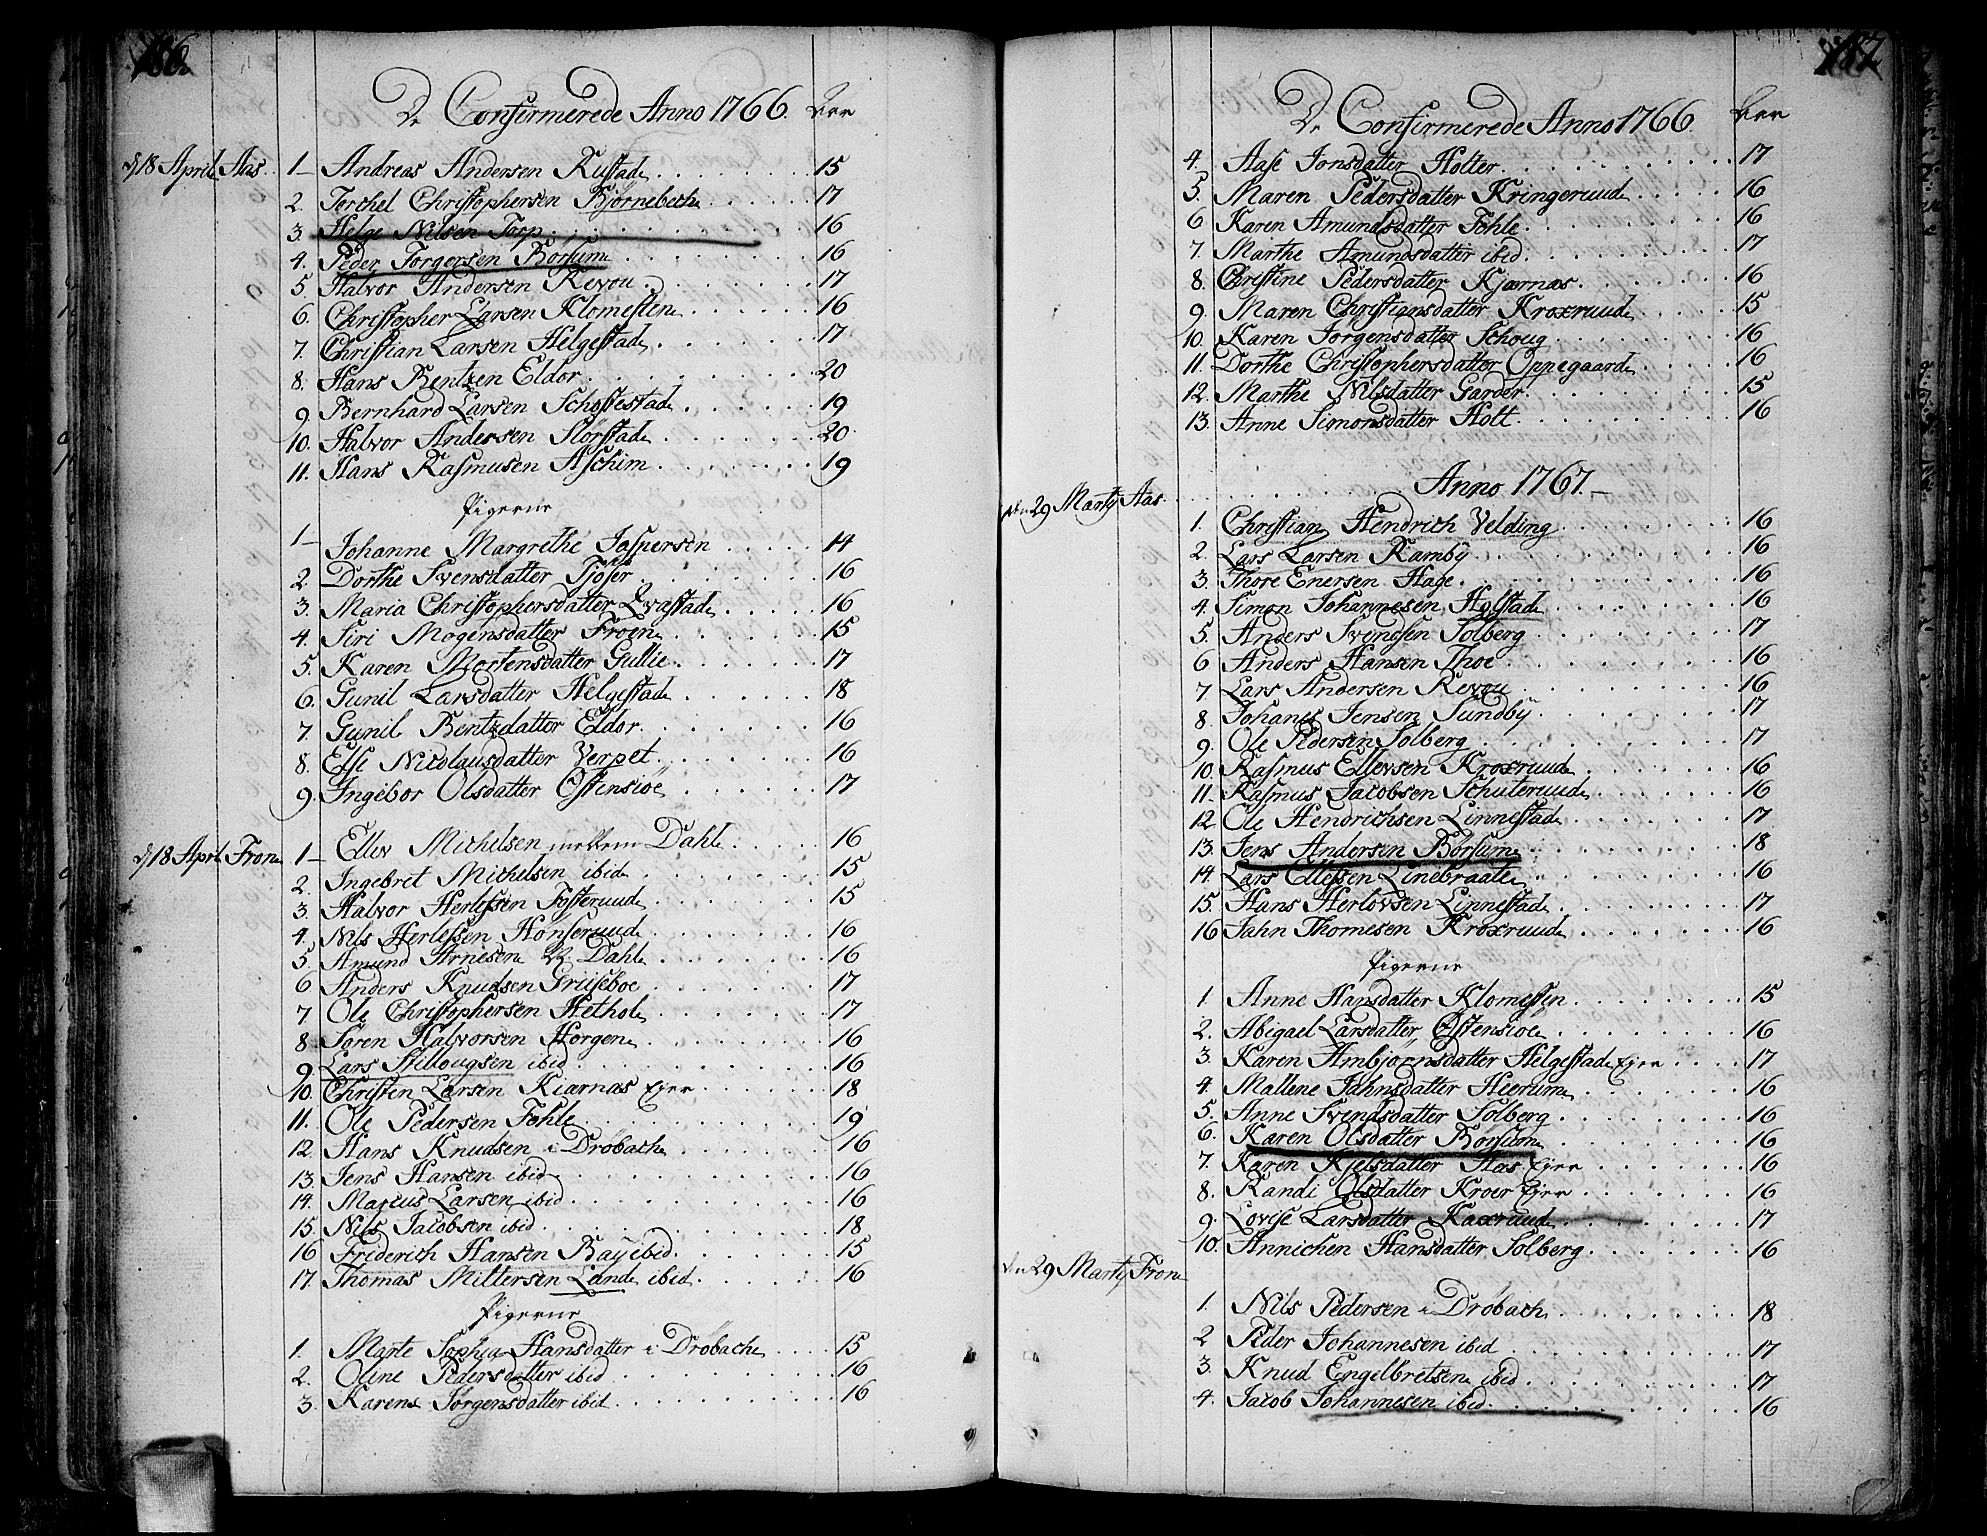 De Confirmerede Anno 1766.
d 18 April Aas. 1 Andreas Andersen Rustad 15
2. Torchel Christophersen Bjørnebech 17
3. Helge Nilsen Torp 16
4. Peder Torgersen Borsum 16
5. Halvor Andersen Revou 17
6. Christopher Larsen Klomesten 16
7. Christian Larsen Helgestad 17
8. Hans Bentzen Eldor 20
9. Bernhard Larsen Schostestad 19
10. Halvor Andersen Storstad 20
11. Hans Rasmusen Aschim 19
Pigerne
1 Johanne Margrethe Jaspersen 14
2. Dorthe Svensdatter Tjøser 16
3. Maria Christophersdatter Qvastad 16
4. Siri Mogensdatter Froen 15
5. Karen Mortensdatter Gullie 17
6. Gunil Larsdatter Helgestad 18
7. Gunil Bentzdatter Eldor 16
8. Else Nicolausdatter Verpet 16
9. Ingebor Olsdatter Østensiøe 17
d 18 April Fron 1 Ellev Michelsen mellem Dahl 16
2. Ingebret Michelsen ibid 15
3. Halvor Herlefsen Fosteruud 15
4. Nils Herlefsen Hønseruud 16
5. Amund Arnesen Dahl 16
6. Anders Knudsen Griiseboe 17
7. Ole Christophersen Hethol 17
8. Søren Halvorsen Horgen 16
9. Lars Hillougsen ibid 16
10. Christen Larsen Kiærnæs Ejer 18
11. Ole Pedersen Fohle 19
12. Hans Knudsen i Drøbach 16
13. Jens Hansen ibid 16
14. Marcus Larsen ibid 16
15. Nils Jacobsen ibid 18
16 Friderich Hansen Bay ibid 15
17. Thomas Miltersen Lund ibid 16
Pigerne
1. Marte Sophia Hansdatter i Drøbach 15
2. Oline Pedersdatter ibid 16
3. Karen Jørgensdatter ibid 16
De Confirmerede Anno 1766
4. Aase Jonsdatter Holter 17
5. Maren Pedersdatter Kringeruud 16
6 Karen Amundsdatter Fohle 16
7. Marthe Amundsdatter ibid 17
8. Christine Pedersdatter Kjærnæs 16
9. Maren Christiansdatter Kroxruud 15
10. Karen Jørgensdatter Schoug 16
11. Dorthe Christophersdatter Oppegaard 16
12. Marthe Nilsdatter Garder 15
13. Anne Simonsdatter Holt 16
Anno 1767.
den 29 Martij Aas.
1. Christian Hendrich Velding 16
2. Lars Larsen Ramby 16
3. Thore Enersen Hage 16
4. Simon Johannesen Holstad 16
5. Anders Svendsen Solberg 17
6 Anders Hansen Thoe 16
7 Lars Andersen Revou 16
8. Johanes Jensen Sundby 17
9. Ole Pedersen Solberg 17
10. Rasmus Ellevsen Kroxruud 16
11. Rasmus Jacobsen Schuteruud 16
12 Ole Hendrichsen Linnestad 17
13. Jens Andersen Borsum 18
14. Lars Ellefsen Linebraate 16
15. Hans Herlovsen Linnestad 17
16 Jahn Thomesen Kroxruud 16
Pigerne
1. Anne Hansdatter Klomesten 15
2. Abigael Larsdatter Østensioe 16
3. Karen Ambjørnsdatter Helgestad Ejer 17
4. Mallene Jahnsdatter Heerum 16
5. Anne Svendsdatter Solberg 16
6. Karen Olsdatter Borsum 16
7. Karen Kielsdatter Aas Ejer 16
8. Randi Olsdatter Kroer Ejer 16
9. Lovise Larsdatter Kaxruud 17
10. Annichen Hansdatter Solberg 16
den 29 Martij Fron
1. Nils Pedersen i Drøbach 18
2 Peder Johannesen ibid 17
3. Knud Engelbretsen ibid 17
4. Jacob Johannesen ibid 16